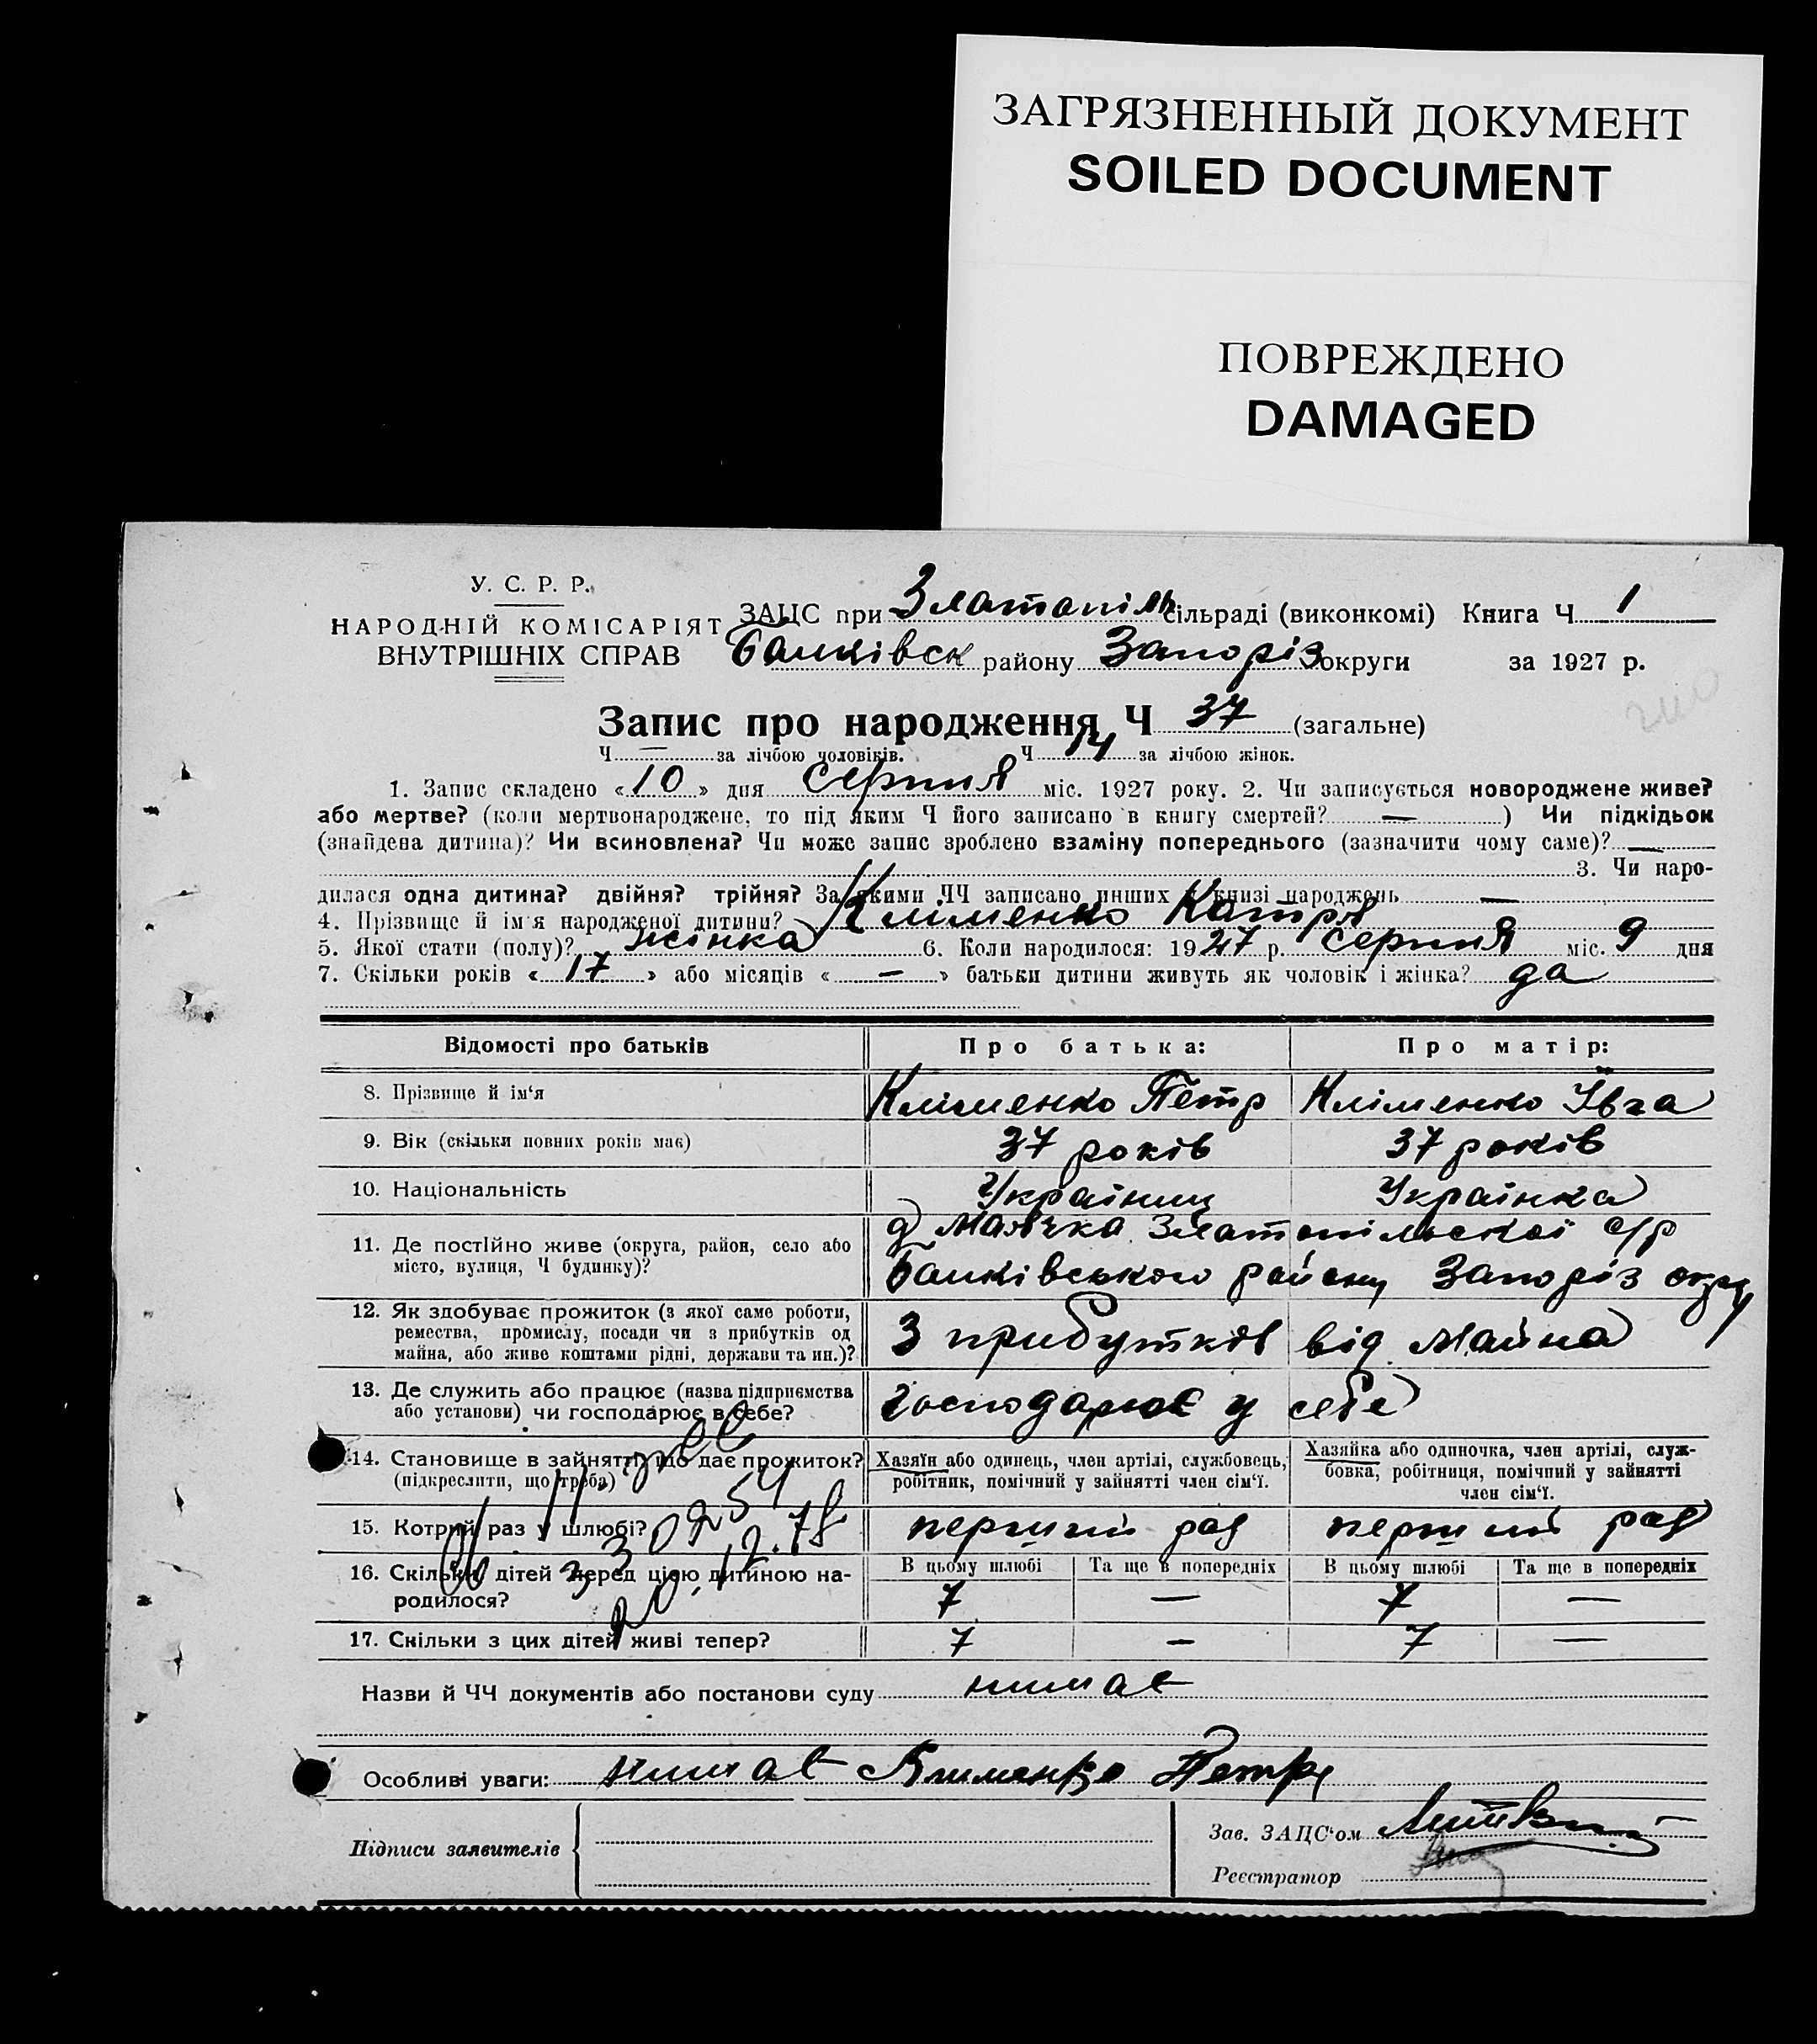 ЗАГРЯЗНЕННЫЙ ДОКУМЕНТ
SOILED DOCUMENT
ПОВРЕЖДЕНО
DAMAGED
У. С. Р. Р.
НАРОДНІЙ КОМІСАРІЯТ
ВНУТРІШНІХ СПРАВ
ЗАЦС при Златопіль сільраді (виконкомі) Книга Ч 1
Банківск району Запоріз округи за 1927 р.
Запис про народження Ч 37 (загальне)
Ч — за лічбою чоловіків. Ч 14 за лічбою жінок.
1. Запис складено «10» дня серпня міс. 1927 року. 2. Чи записується новороджене живе?
або мертве? (коли мертвонароджене, то під яким Ч його записано в книгу смертей? — ) Чи підкідьок
(знайдена дитина)? Чи всиновлена? Чи може запис зроблено взаміну попереднього (зазначити чому саме)? —
3. Чи наро-
дилася одна дитина? двійня? трійня? За якими ЧЧ записано инших в книзі народжень —
4. Прізвище й ім'я народженої дитини? Кліменко Катря
5. Якої стати (полу)? жінка 6. Коли народилося: 1927 р. серпня міс. 9 дня
7. Скільки років «17» або місяців « — » батьки дитини живуть як чоловік і жінка? да
Відомості про батьків Про батька: Про матір:
8. Прізвище й ім'я Кліменко Петр Кліменко Івга
9. Вік (скільки повних років має) 37 років 37 років
10. Національність Українец Українка
11. Де постійно живе (округа, район, село або
місто, вулиця, Ч будинку)?
д Маячка Златопільскої с/р
Банківського району Запоріз окру
12. Як здобуває прожиток (з якої саме роботи,
ремества, промислу, посади чи з прибутків од
майна, або живе коштами рідні, держави та ин.)?
З прибутків від майна
13. Де служить або працює (назва підприємства
або установи) чи господарює в себе?
господарює у себе
14. Становище в зайнятті, що дає прожиток?
(підкреслити, що треба)
Хазяїн або одинець, член артілі, службовець,
робітник, помічний у зайнятті член сім'ї.
Хазяйка або одиночка, член артілі, служ-
бовка, робітниця, помічний у зайнятті
член сім'ї.
15. Котрий раз у шлюбі? перший раз перший раз
16. Скільки дітей перед цією дитиною на-
родилося?
В цьому шлюбі Та ще в попередніх В цьому шлюбі Та ще в попередніх
7 — 7 —
17. Скільки з цих дітей живі тепер? 7 — 7 —
20.12.78
Назви й ЧЧ документів або постанови суду нимає
Особливі уваги: нимає Клименко Петр
Підписи заявителів
Зав. ЗАЦС'ом
Реєстратор